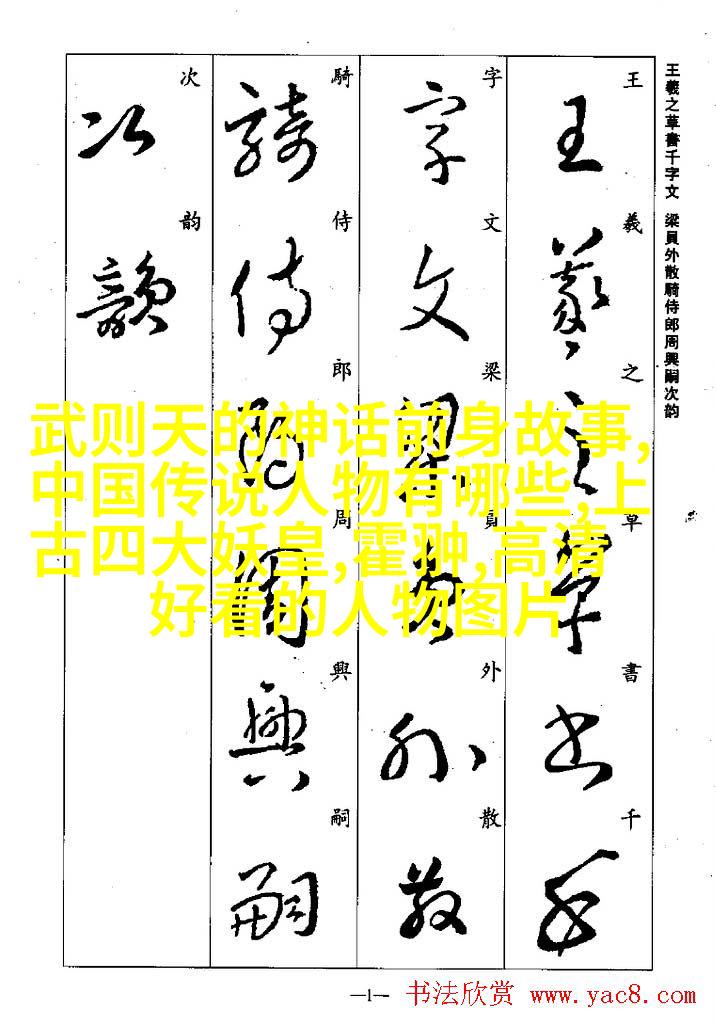 王羲之草書千字文 梁員外散騎侍郎周興嗣次韵
王羲之草書千
字文梁員外散
騎侍郎周興嗣
次韵
武则天的神话前身故事,
中国传说人物有哪些,上
古四大妖皇,霍翀,高清
好看的人物图片
—1—
书法欣赏 www.yac8.com